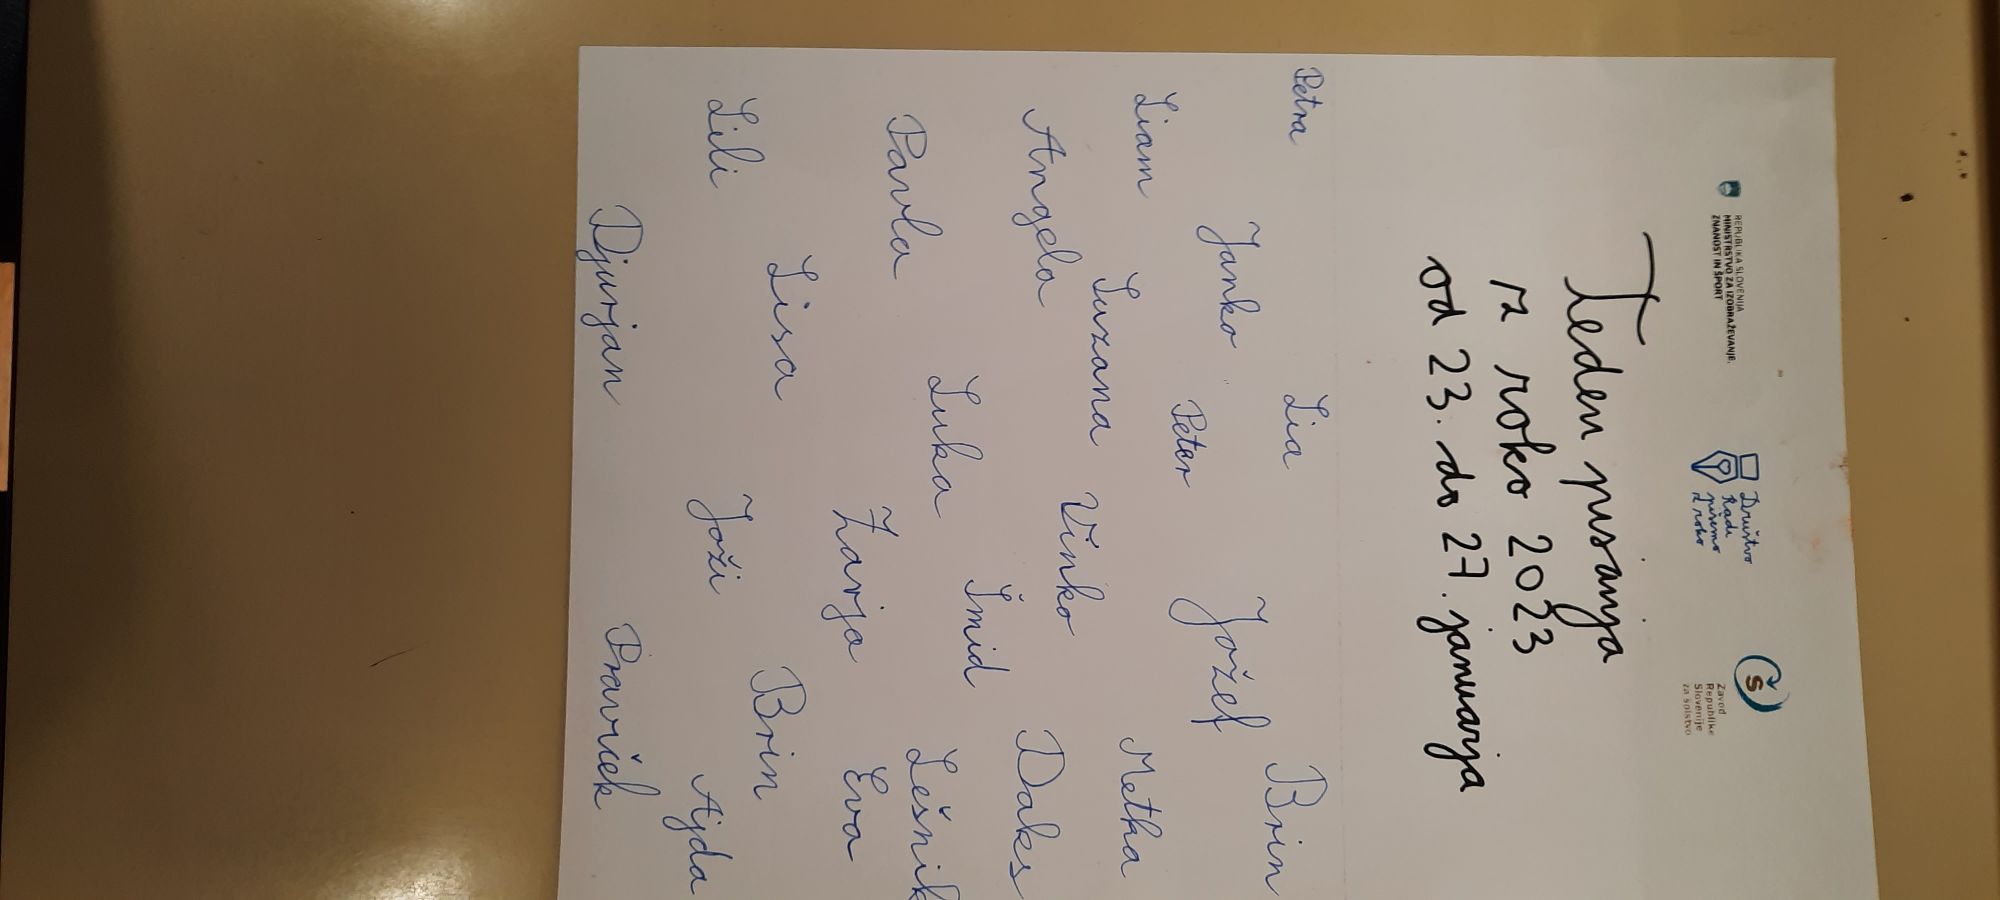 REPUBLIKA SLOVENIJA
MINISTRSTVO ZA IZOBRAŽEVANJE,
ZNANOST IN ŠPORT
Društvo
Radi
pišemo
z roko
Zavod
Republike
Slovenije
za šolstvo
Teden pisanja
z roko 2023
od 23. do 27. januarja
Petra Lia Brin
Janko Peter Jožef
Liam Suzana Metka
Angela Vinko Daks
Luka Šmid Lešnik
Pavla Zarja Eva
Lisa Brin
Lili Joži Ajda
Djurjan Pravček